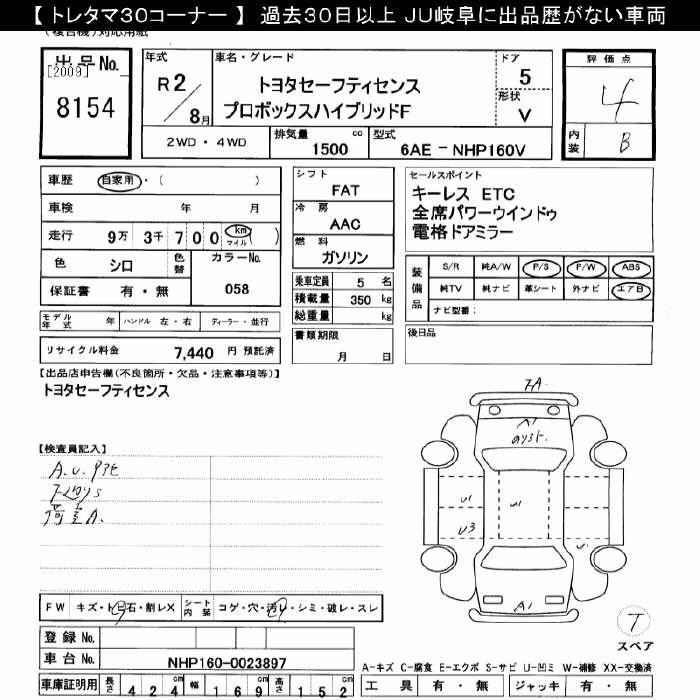 【 トレタマ30コーナー 】 過去30日以上 JU岐阜に出品歴がない車両
(複合機)対応用紙
出品No.
[2009]
8154
年式
R2/8月
車名・グレード
トヨタセーフティセンス
プロボックスハイブリッドF
ドア
5
形状
V
評価点
4
内装
B
2WD・4WD
排気量
1500
cc
型式
6AE-NHP160V
車歴 自家用・( )
車検 年 月
走行 9万 3千 700 km マイル ( )
色 シロ
色替
カラーNo.
058
保証書 有・無
モデル年式 年
ハンドル 左・右
ディーラー・並行
リサイクル料金 7,440 円 預託済
シフト
FAT
冷房
AAC
燃料
ガソリン
乗車定員 5 名
積載量 350 kg
総重量 kg
書類期限
月 日
セールスポイント
キーレス ETC
全席パワーウインドゥ
電格ドアミラー
装備品
S/R 純A/W P/S P/W ABS
純TV 純ナビ 革シート 外ナビ エアB
ナビ型番:
後日品
【出品店申告欄(不良箇所・欠品・注意事項等)】
トヨタセーフティセンス
【検査員記入】
A.U
荷室A.
FW キズ・トビ石・割レX
シート内装 コゲ・穴・汚レ・シミ・破レ・スレ
登録No.
車台No. NHP160-0023897
車庫証明用 長さ 424 cm 幅 169 cm 高さ 152 cm
A1
U1
U1
U3
U1
A1
T
スペア
A-キズ C-腐食 E-エクボ S-サビ U-凹ミ W-補修 XX-交換済
工具 有・無 ジャッキ 有・無